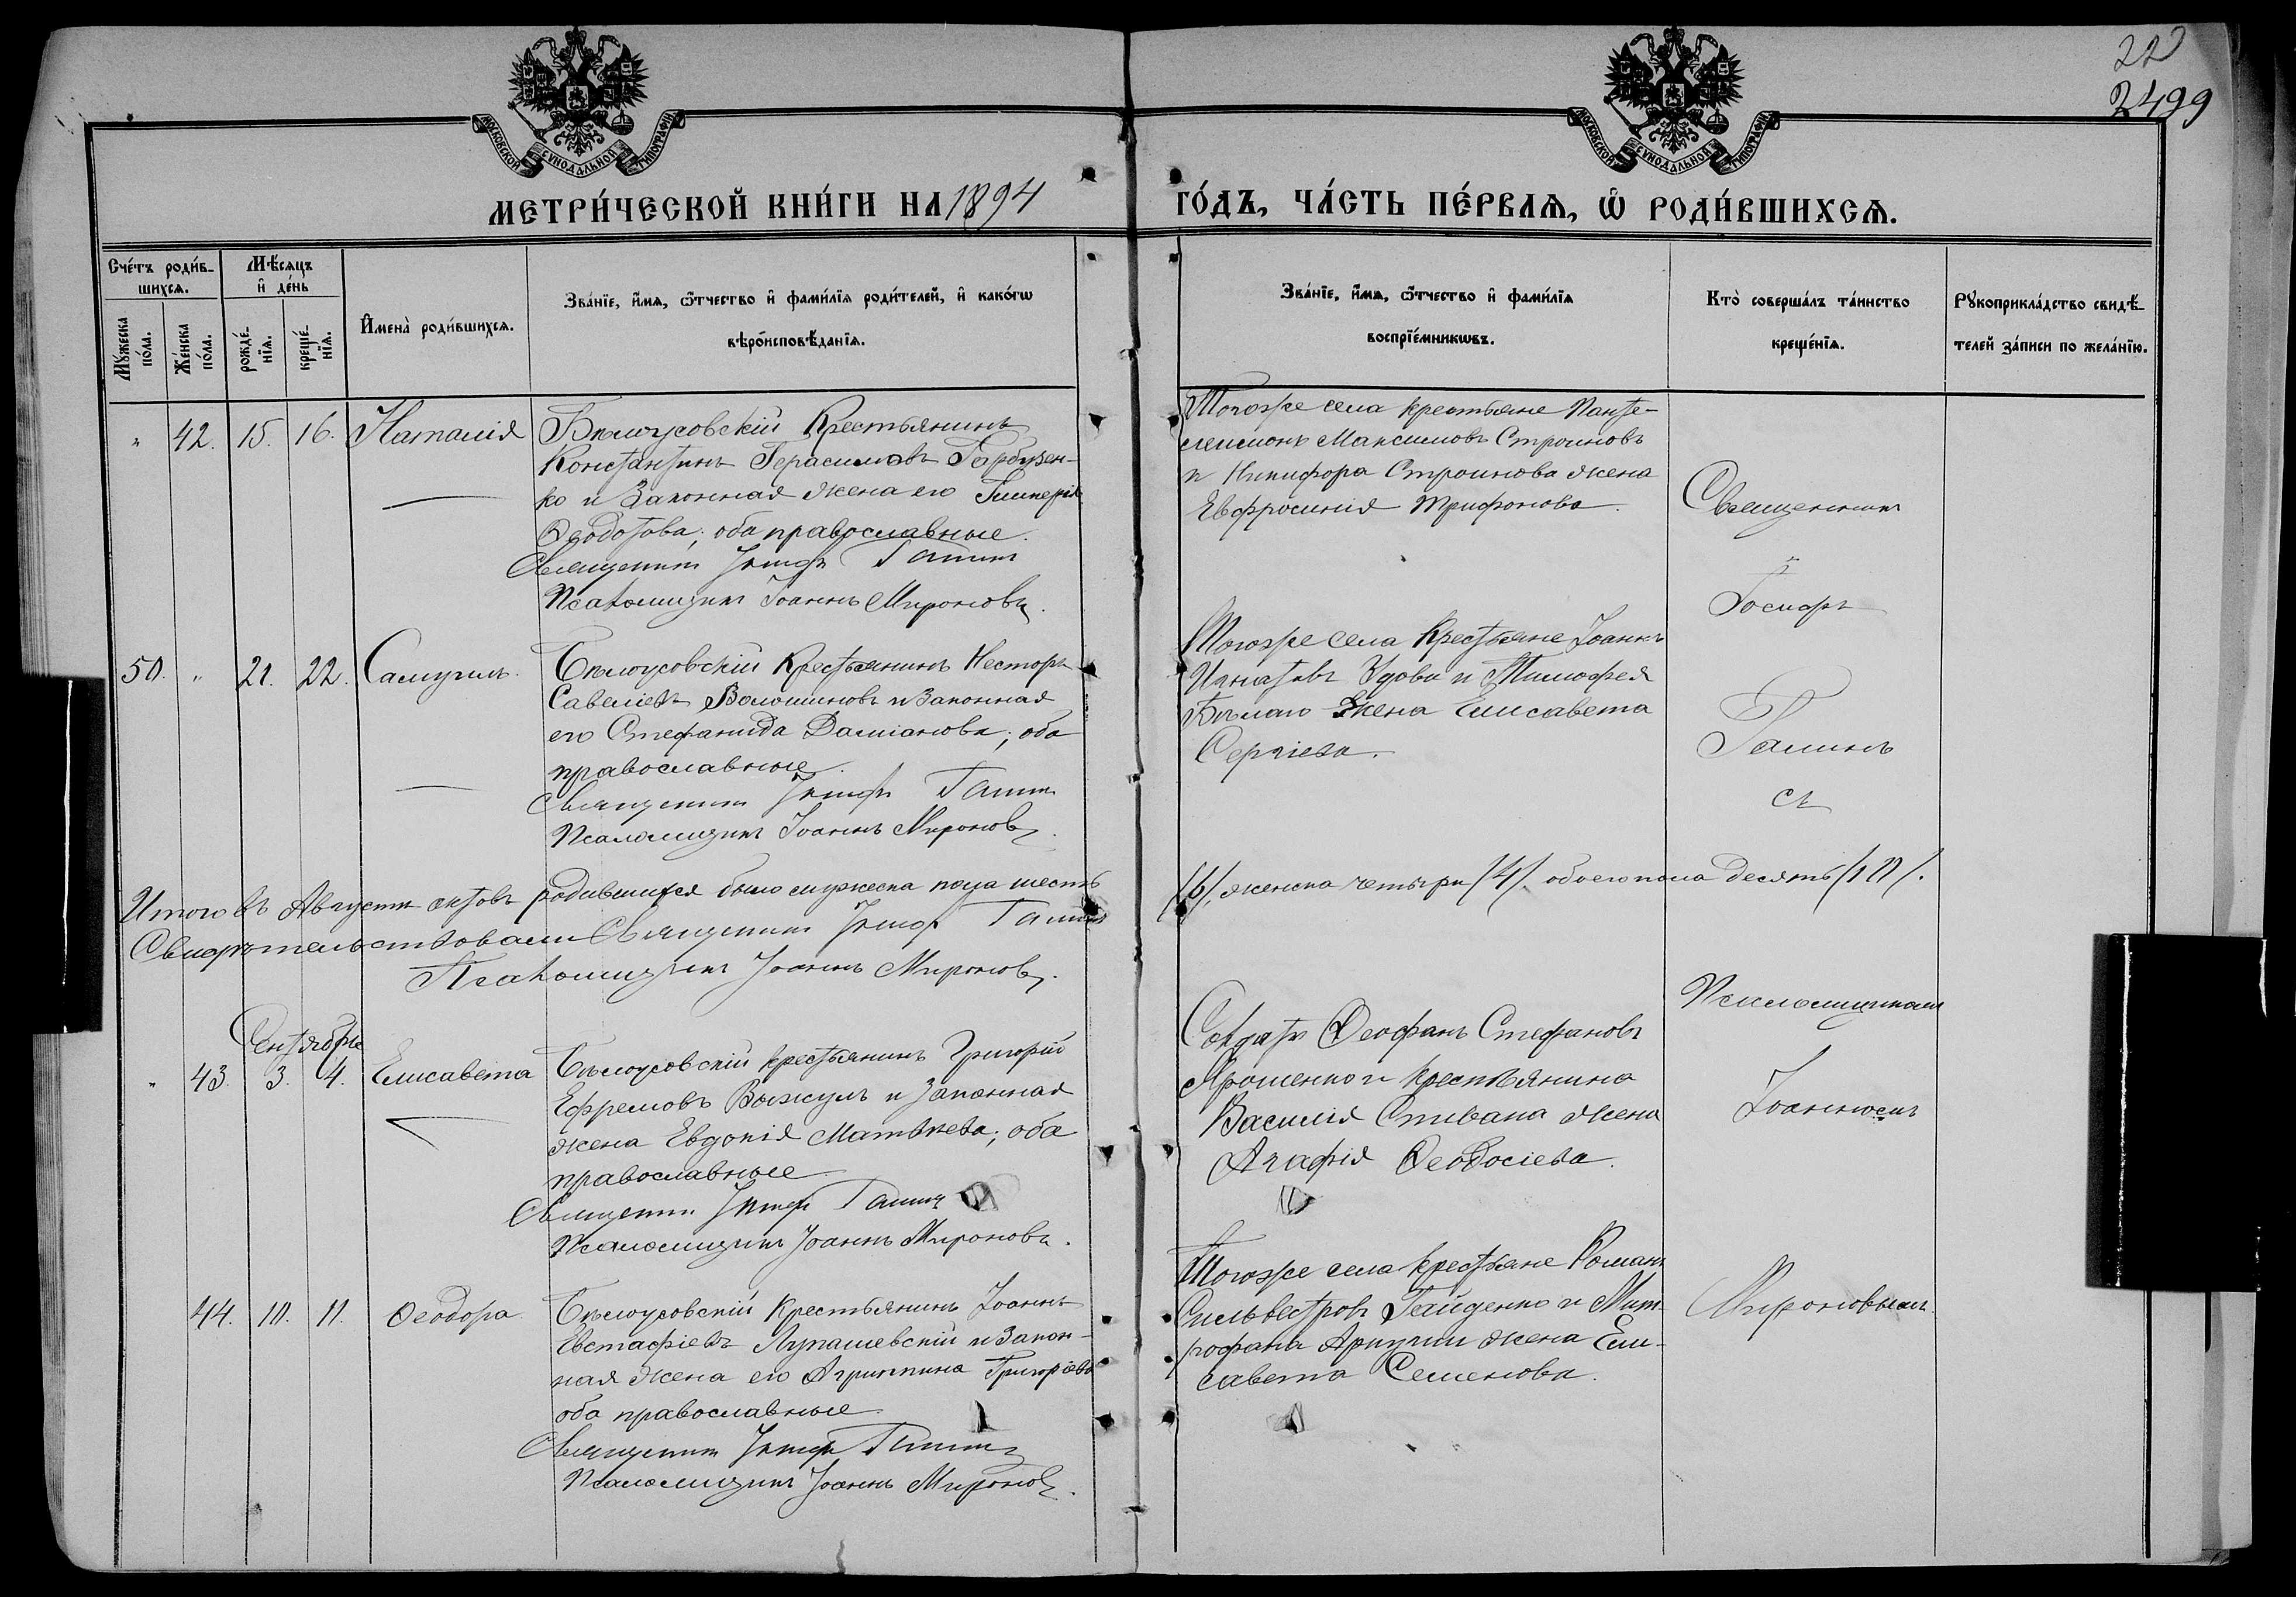 222
2499
МОСКОВСКОЙ СѴНОДАЛЬНОЙ ТИПОГРАФІИ
МОСКОВСКОЙ СѴНОДАЛЬНОЙ ТИПОГРАФІИ
МЕТРИ́ЧЕСКОЙ КНИ́ГИ НА 1894
ГО́ДЪ, ЧА́СТЬ ПЕ́РВАѦ, Ѡ҆ РОДИ́ВШИХСѦ.
Сче́тъ роди́в-
шихсѧ.
Мꙋ́жеска
по́ла.
Же́нска
по́ла.
Мѣ́сѧцъ
и҆ де́нь
рожде́-
нїѧ.
креще́-
нїѧ.
И҆мена̀ роди́вшихсѧ.
Зва́нїе, и҆́мѧ, ѻ҆́тчество и҆ фами́лїѧ роди́телей, и҆ како́гѡ
вѣроисповѣ́данїѧ.
Зва́нїе, и҆́мѧ, ѻ҆́тчество и҆ фами́лїѧ
воспрїе́мникѡвъ.
Кто̀ соверша́лъ та́инство
креще́нїѧ.
Рꙋкоприкла́дство свидѣ́-
телей за́писи по жела́нїю.
" 42. 15. 16. Наталія
Бѣлоусовскій Крестьянинъ
Константинъ Герасимовъ Гарбузен-
ко и Законная жена его Гликерія
Ѳеодотова; оба православные.
Священникъ Іосифъ Галинъ
Псаломщикъ Іоаннъ Мироновъ.
Тогоже села крестьяне Панте-
леимонъ Максимовъ Строиновъ
и Никифора Строинова жена
Евфросинія Трифонова.
Священникъ
Іосифъ
Галинъ
съ
50. " 21. 22. Самуилъ.
Бѣлоусовскій Крестьянинъ Несторъ
Савеліевъ Волошиновъ и Законная
его Стефанида Даміанова; оба
православные.
Священникъ Іосифъ Галинъ
Псаломщикъ Іоаннъ Мироновъ.
Тогоже села Крестьяне Іоаннъ
Игнатовъ Удови и Тимофея
Бѣлаго Жена Елисавета
Сергіева.
Итого въ Августѣ актовъ родившихся было мужеска пола шесть
/6/, женска четыре /4/. обоего пола десять /10/.
Свидѣтельствовали Священникъ Іосифъ Галинъ
Псаломщикъ Іоаннъ Мироновъ.
Сентябрь
" 43. 3. 4. Елисавета
Бѣлоусовскій крестьянинъ Григорій
Ефремовъ Выжулъ и Законная
жена Евдокія Матвѣева; оба
православные
Священникъ Іосифъ Галинъ
Псаломщикъ Іоаннъ Мироновъ.
Солдатъ Ѳеофанъ Стефановъ
Ярошенко и крестьянина
Василія Спивака жена
Агафія Ѳеодосіева.
Псаломщикомъ
Іоанномъ
44. 10. 11. Ѳеодора
Бѣлоусовскій Крестьянинъ Іоаннъ
Евстафіевъ Лупашевскій и Закон-
ная жена его Агрипина Григоріева
оба православные
Священникъ Іосифъ Галинъ
Псаломщикъ Іоаннъ Мироновъ.
Тогоже села крестьяне Романъ
Сильвестровъ Гайденко и Мит-
рофана жена Ели-
савета Семенова.
Мироновымъ.